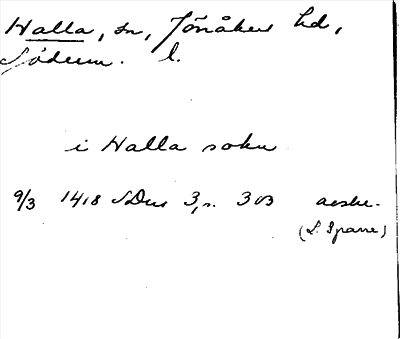 Halla, sn, Jönåkers hd,
Söderm. l.
i Halla sokn
9/3 1418 SDns 3, s. 303 avskr.